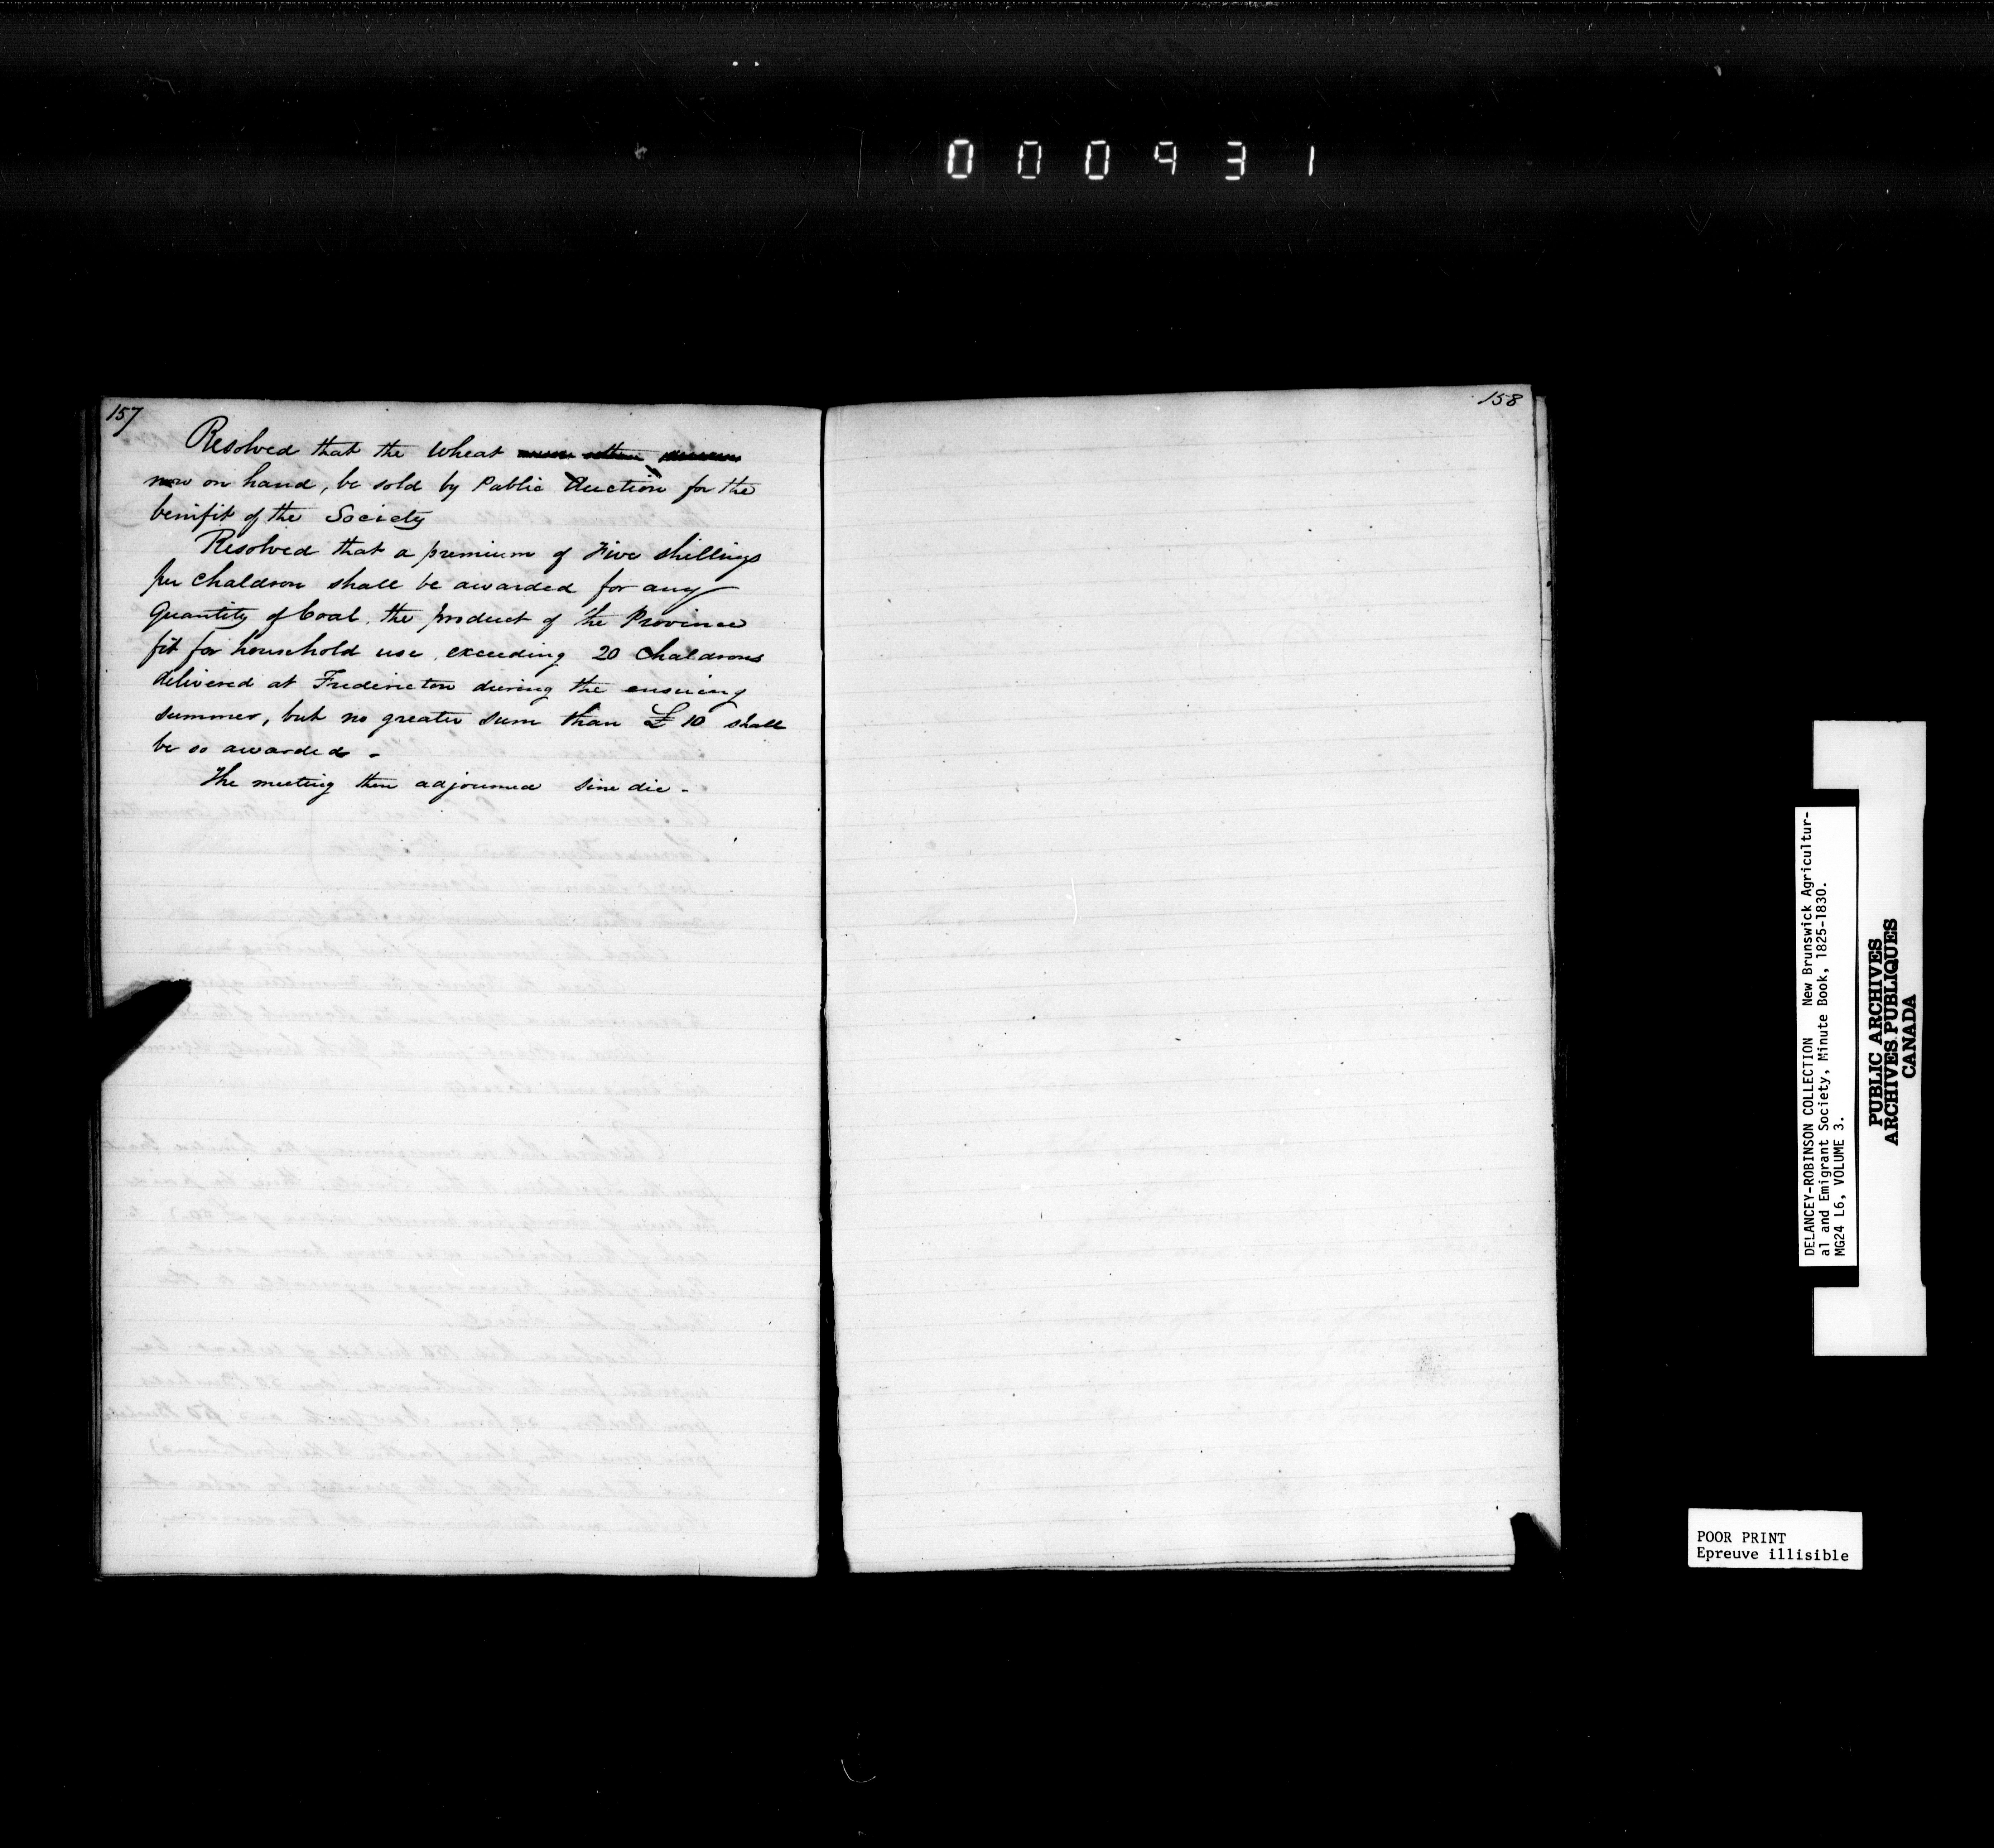 000931
157
Resolved that the Wheat
now on hand, be sold by Public Auction for the
benifit of the Society
Resolved that a premium of Five shillings
per Chaldron shall be awarded for any
Quantity of Coal, the product of the Province
fit for household use, exceeding 20 Chaldrons
delivered at Fredericton during the ensuing
summer, but no greater sum than £10 shall
be so awarded -
The meeting then adjourned sine die -
158
DELANCEY-ROBINSON COLLECTION New Brunswick Agricultur-
al and Emigrant Society, Minute Book, 1825-1830.
MG24 L6, VOLUME 3.
PUBLIC ARCHIVES
ARCHIVES PUBLIQUES
CANADA
POOR PRINT
Epreuve illisible